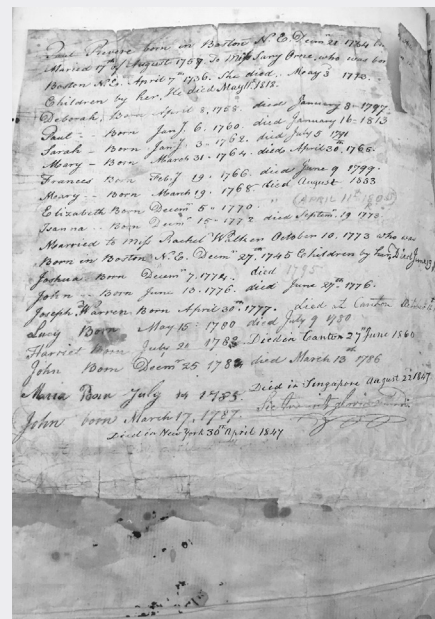 Paul Revere born in Boston N.E. Decmr 21 1734
Maried 17th of August 1757. To Miss Sary Orne, who was bn
Boston N.E. April 7th 1736. She died May 3 1773.
Children by her. He died May 11th. 1818.
Deborah, Born April 8, 1758. died January 8 - 1797.
Paul - Born Jany 6. 1760. died January 16 - 1813
Sarah - Born Jany 3 - 1762. died July 5 1791
Mary - Born March 31 - 1764. died April 30th, 1765.
Frances Born Feby 19. 1766. died June 9 1799.
Mary - Born March 19. 1768. died August 1853
Elizabeth Born Decemr 5th 1770. " (APRIL 11th 1805)
Isanna - Born Decmr 15 - 1772 died Septemr. 19 1773.
Married to Miss Rachel Walker October 10, 1773 who was
Born in Boston N.E. Decmr 27th. 1745 Children by her. Died June
Joshua. Born Decemr 7. 1774. died 1795
John - Born June 13 - 1776. died June 27th 1776.
Joseph Warren Born April 30th 1777. died at Canton
Lucy Born May 15: 1780 died July 9 1780
Harriet Born July 21 1782 Died in Canton 27 June 1860
John Born Decemr 25 1783 died March 13th 1786
Maria Born July 14 1785. Died in Singapore August 22 1847
John born March 17, 1787.
Died in New York 30th April 1847